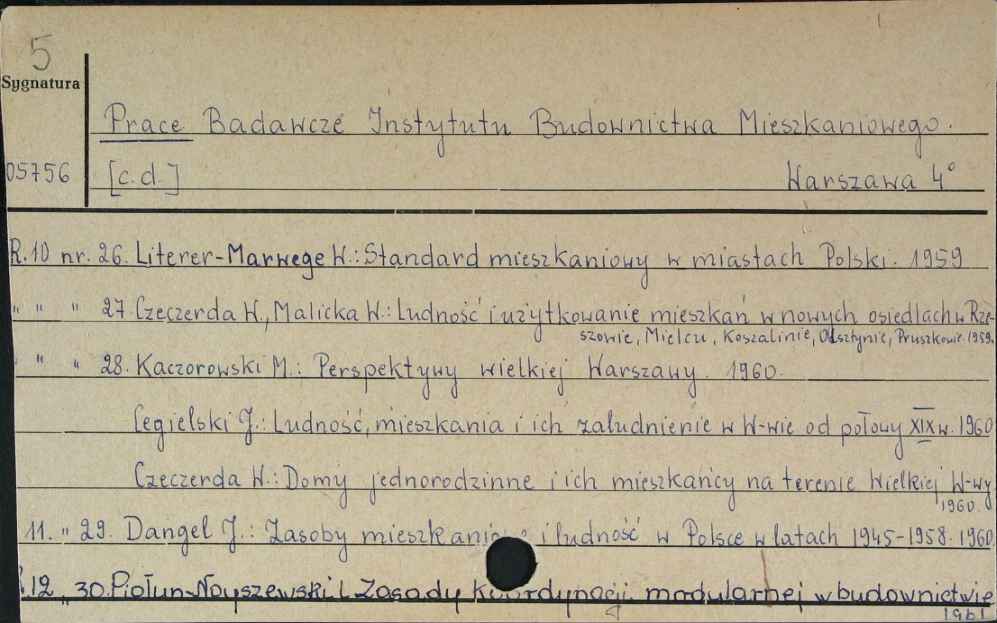 5
Sygnatura
Prace Badawcze Instytutu Budownictwa Mieszkaniowego.
05756 [c.d.] Warszawa 4°
R.10 nr. 26. Literer-Marwege W.: Standard mieszkaniowy w miastach Polski. 1959
" " " 27. Czeczerda W., Malicka W.: Ludność i użytkowanie mieszkań w nowych osiedlach w Rze-
szowie, Mielcu, Koszalinie, Olsztynie, Pruszkowie. 1959.
" " " 28. Kaczorowski M.: Perspektywy wielkiej Warszawy. 1960.
Cegielski J.: Ludność, mieszkania i ich zaludnienie w W-wie od połowy XIX w. 1960
Czeczerda W.: Domy jednorodzinne i ich mieszkańcy na terenie Wielkiej W-wy
1960.
11. " 29. Dangel J.: Zasoby mieszkaniowe i ludność w Polsce w latach 1945-1958. 1960
R.12 " 30. Piołun-Noyszewski L Zasady koordynacji modularnej w budownictwie
1961